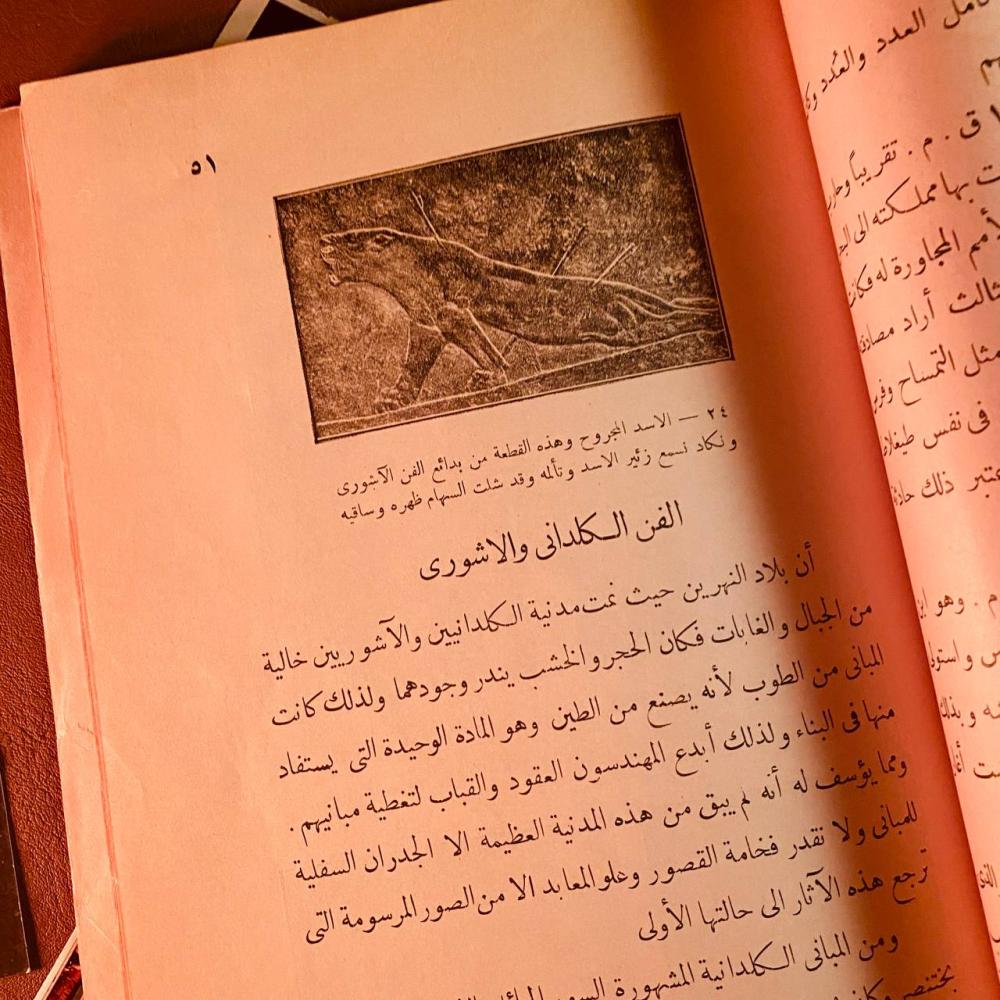 ٥١
٢٤ — الاسد المجروح وهذه القطعة من بدائع الفن الآشورى
ونكاد نسمع زئير الاسد وتألمه وقد شلت السهام ظهره وساقيه
الفن الكلدانى والاشورى
أن بلاد النهرين حيث نمت مدنية الكلدانيين والآشوريين خالية
من الجبال والغابات فكان الحجر والخشب يندر وجودهما ولذلك كانت
المبانى من الطوب لأنه يصنع من الطين وهو المادة الوحيدة التى يستفاد
منها فى البناء ولذلك أبدع المهندسون العقود والقباب لتغطية مبانيهم .
ومما يؤسف له أنه لم يبق من هذه المدنية العظيمة الا الجدران السفلية
للمبانى ولا نقدر فخامة القصور وعلو المعابد الا من الصور المرسومة التى
ترجع هذه الآثار الى حالتها الأولى
ومن المبانى الكلدانية المشهورة السور
العدد والعُدد
ق . م . تقريباً
بها مملكته الى
المجاورة له
أراد
مثل التمساح
فى نفس
ذلك
م . وهو